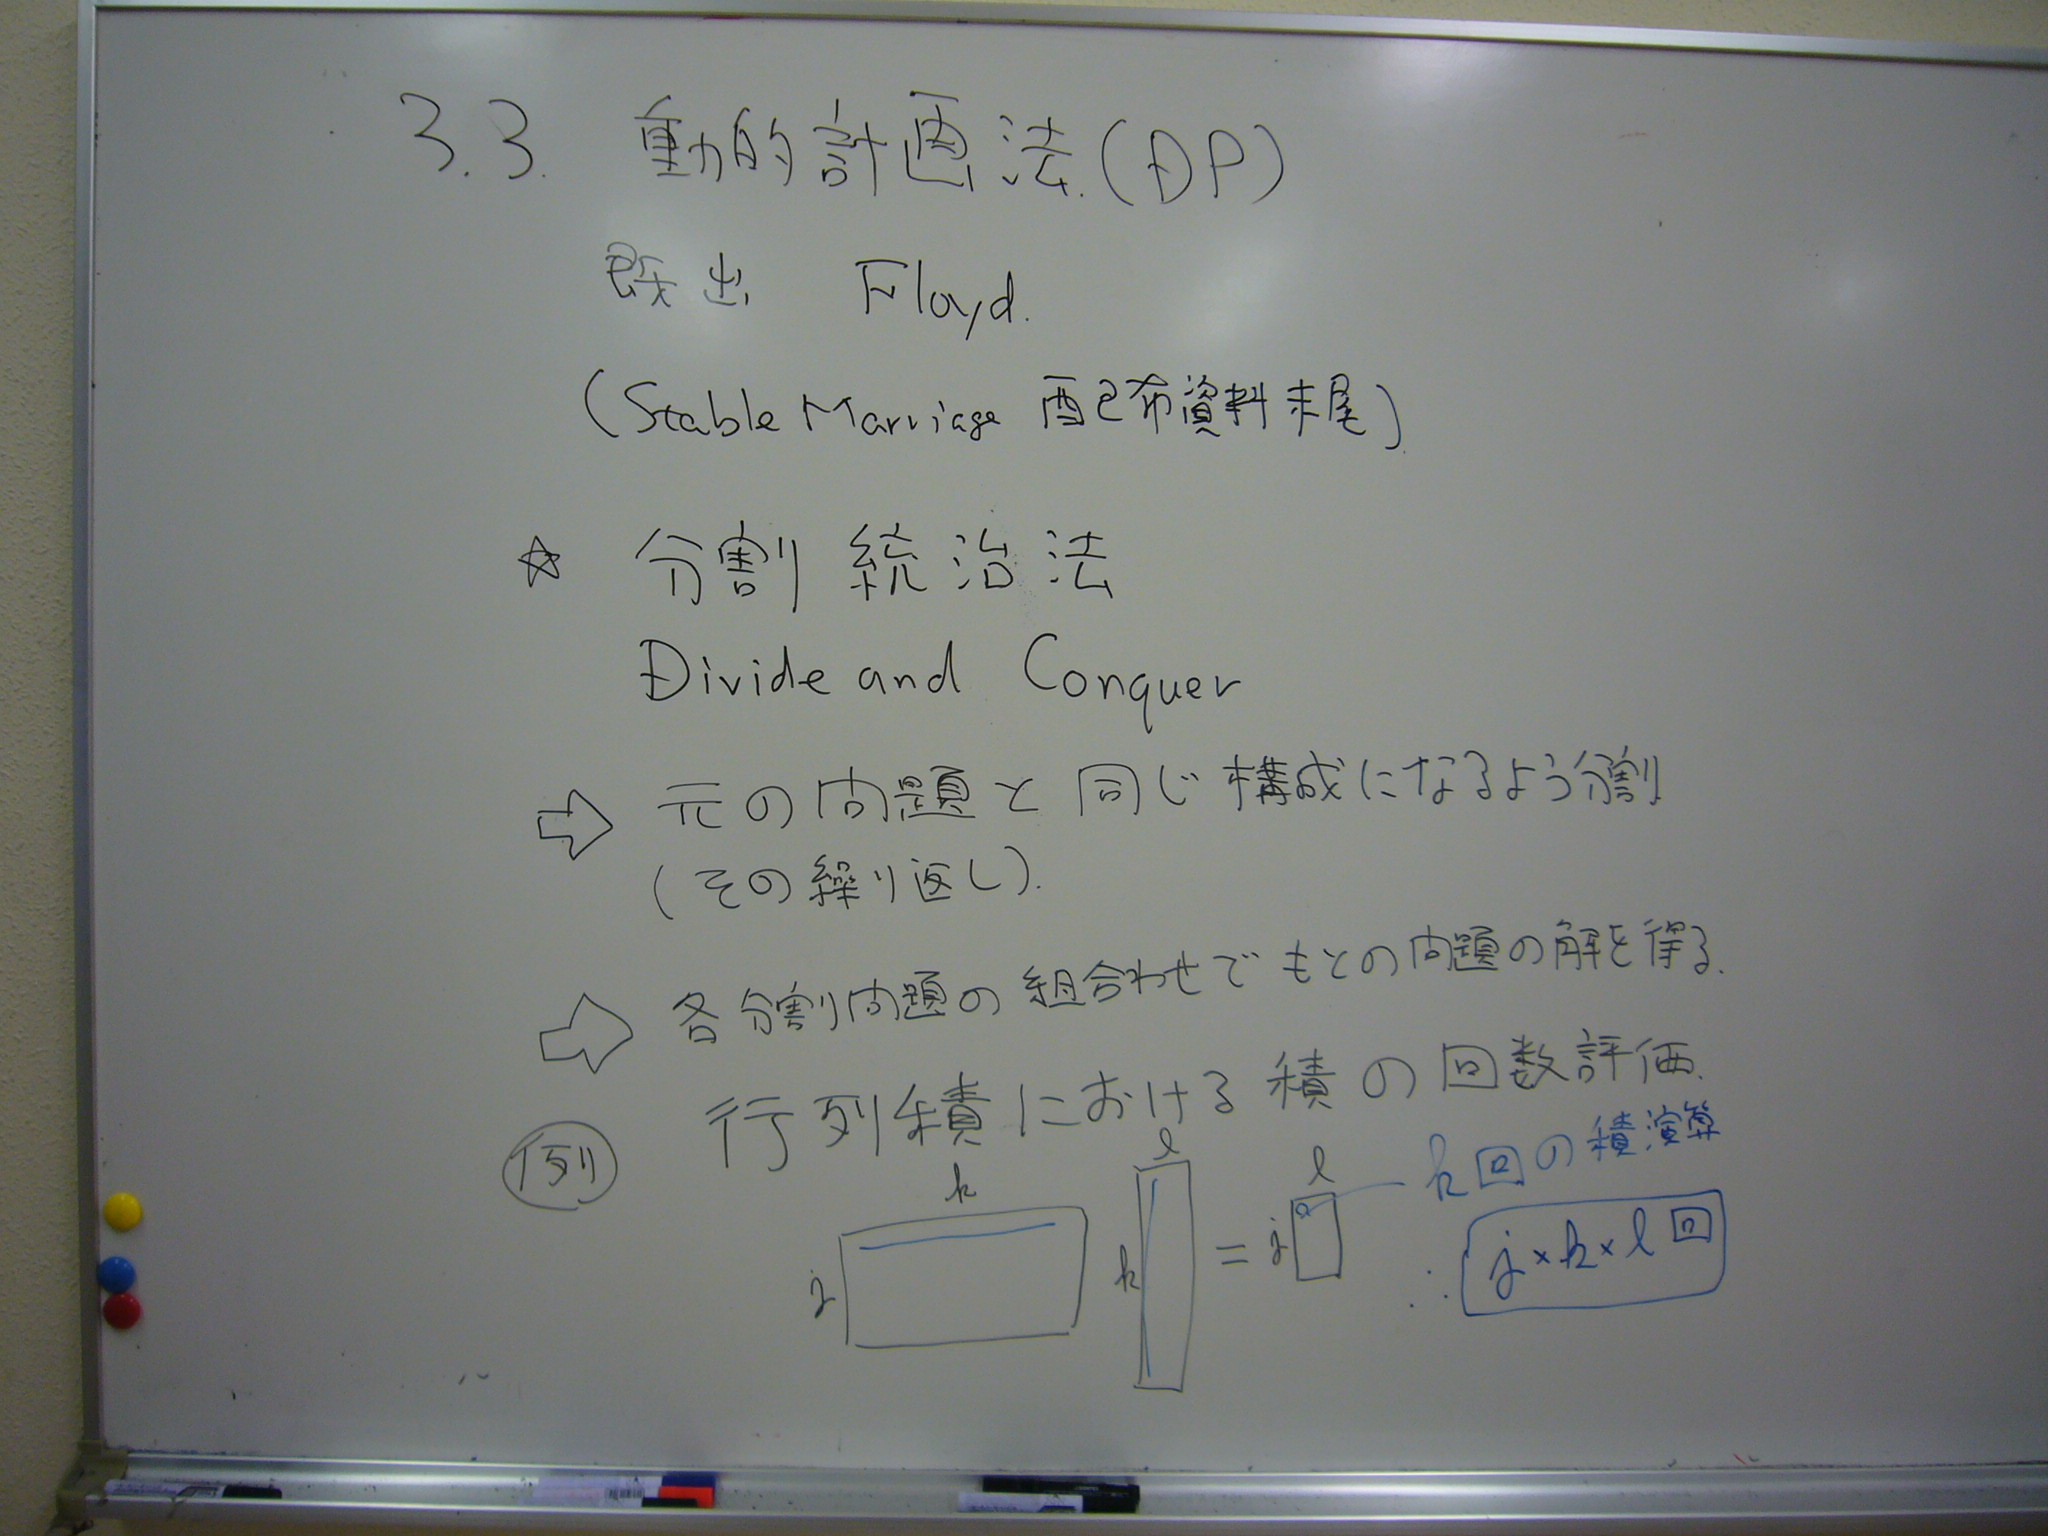 3.3. 動的計画法.(DP)
既出 Floyd.
(Stable Marriage 配布資料末尾)
☆ 分割統治法
Divide and Conquer
⇨ 元の問題と同じ構成になるよう分割
(その繰り返し).
⇨ 各分割問題の組合わせでもとの問題の解を得る.
例 行列積における積の回数評価.
k l l k回の積演算
j k = j ∴ j×k×l回